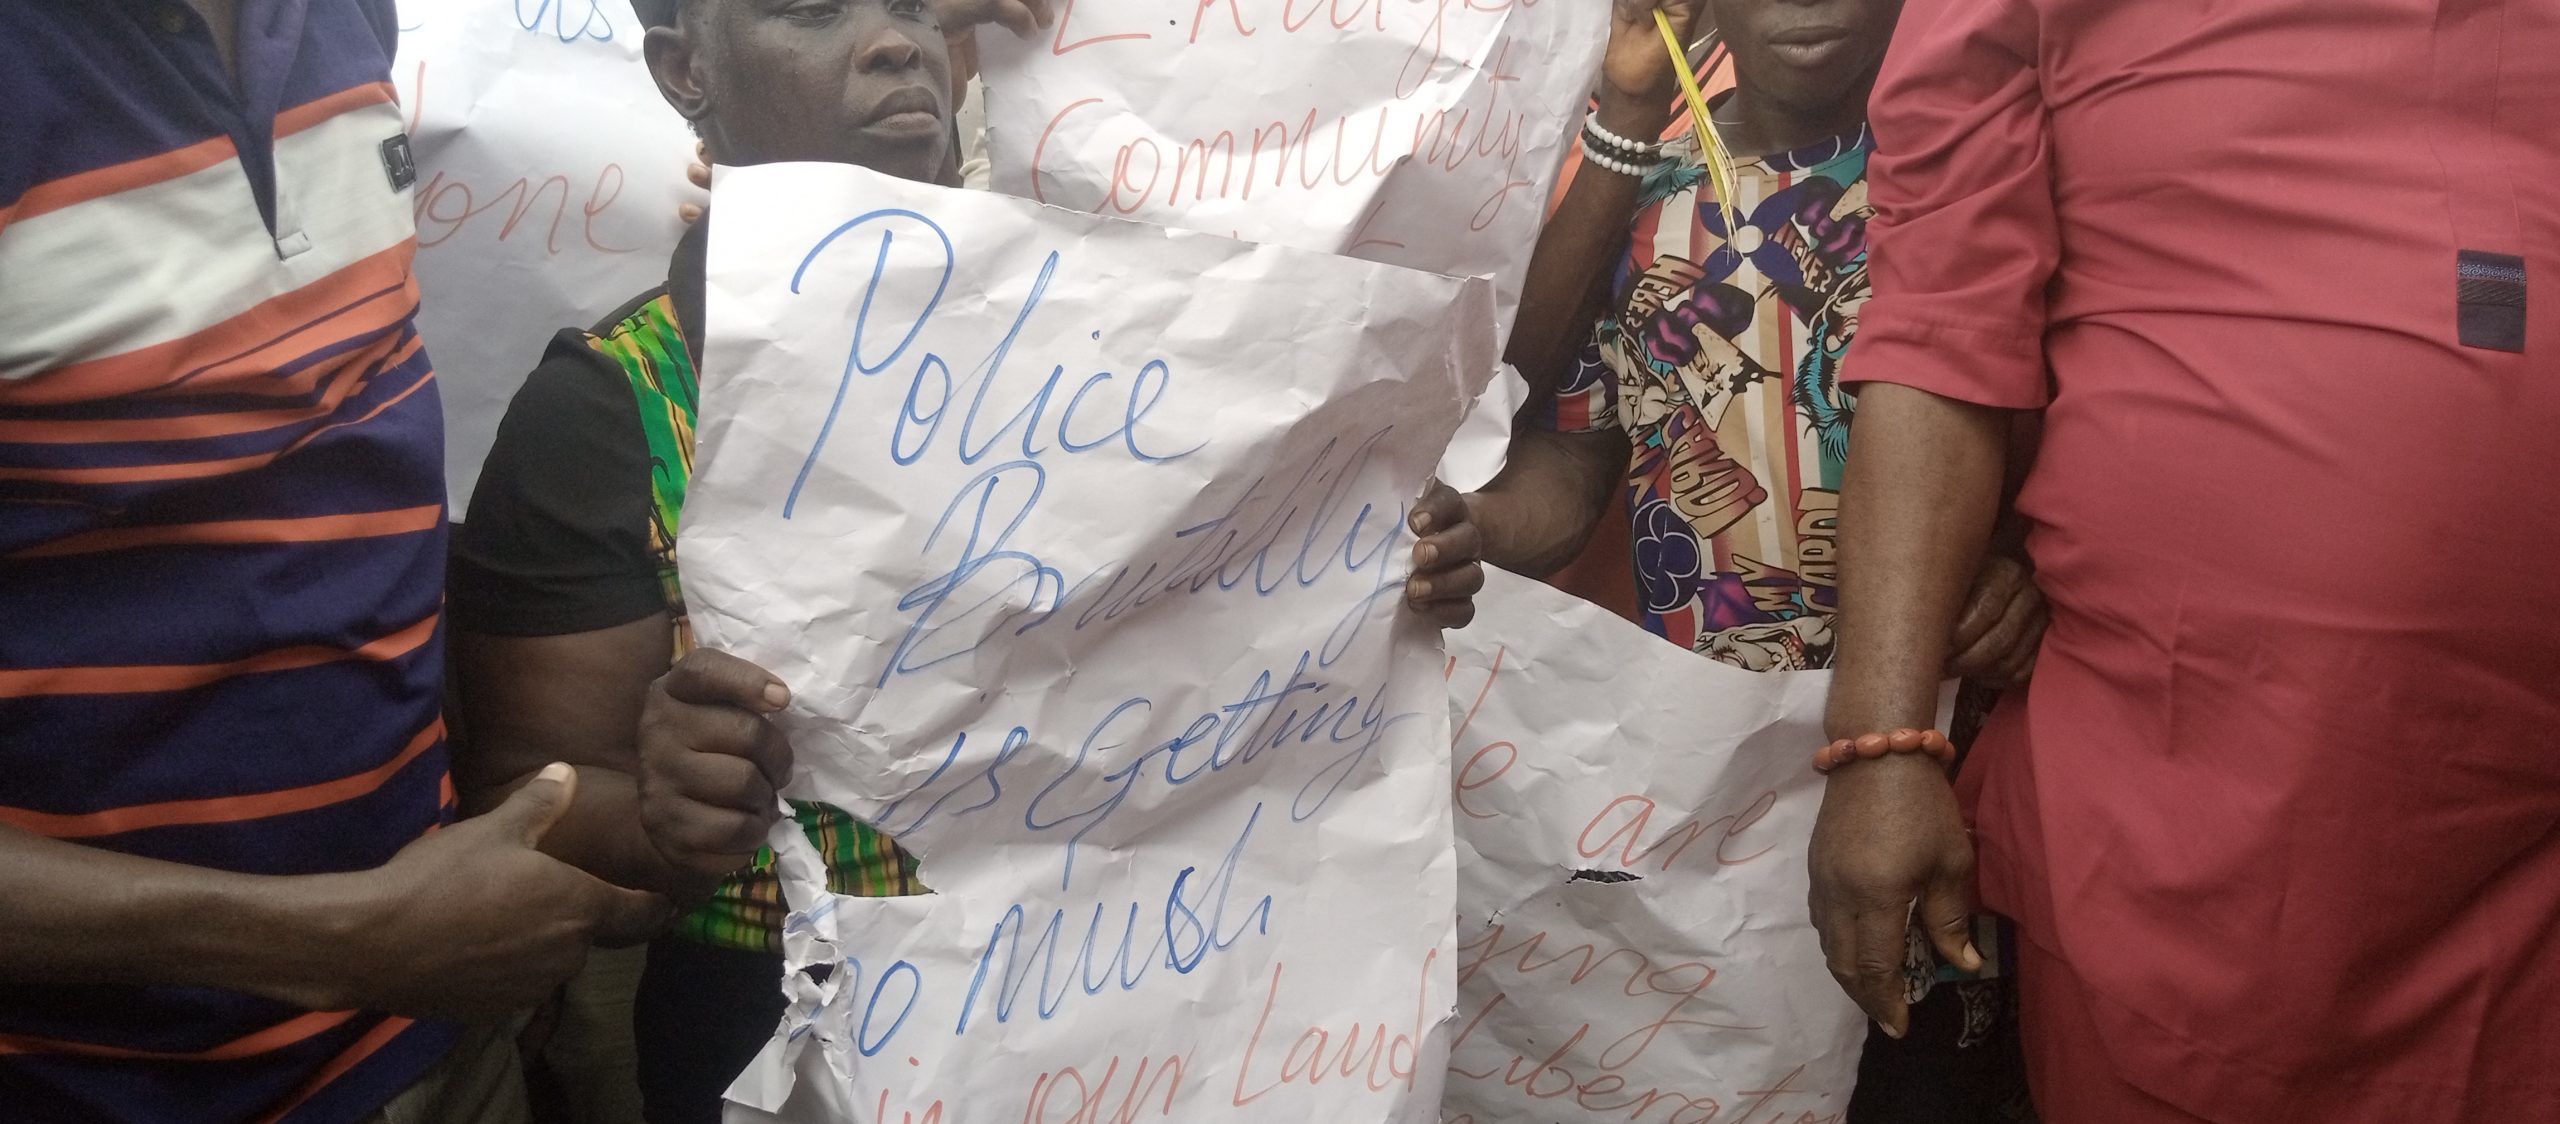 us
one
Community
Police
Brutality
is Getting
too mush
in our Land
are
ying
Liberation
HEBE?
CARDI
MY
CARDI